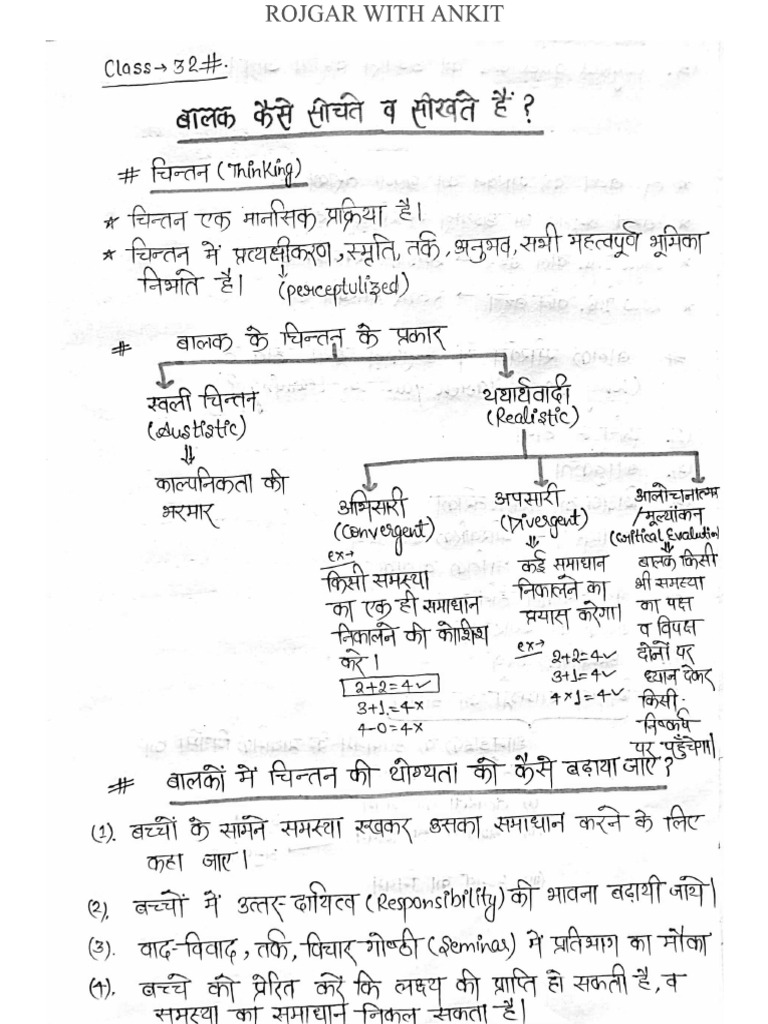 ROJGAR WITH ANKIT
Class→32#.
बालक कैसे सोचते व सीखते हैं?
# चिन्तन (Thinking)
* चिन्तन एक मानसिक प्रक्रिया है।
* चिन्तन में प्रत्यक्षीकरण, स्मृति, तर्क, अनुभव, सभी महत्वपूर्ण भूमिका
निभाते है। (perceptulized)
# बालक के चिन्तन के प्रकार
स्वली चिन्तन
(Austistic)
⇓
काल्पनिकता की
भरमार
यथार्थवादी
(Realistic)
अभिसारी
(Convergent)
ex→
किसी समस्या
का एक ही समाधान
निकालने की कोशिश
करे।
2+2=4✓
3+1=4×
4-0=4×
अपसारी
(Divergent)
⇓
कई समाधान
निकालने का
प्रयास करेगा।
ex→ 2+2=4✓
3+1=4✓
4×1=4✓
आलोचनात्मक
/मूल्यांकन
(Critical Evaluation)
बालक किसी
भी समस्या
का पक्ष
व विपक्ष
दोनों पर
ध्यान देकर
किसी
निष्कर्ष
पर पहुँचेगा।
# बालकों मे चिन्तन की योग्यता को कैसे बढ़ाया जाए?
(1). बच्चों के सामने समस्या रखकर उसका समाधान करने के लिए
कहा जाए।
(2). बच्चों में उत्तर-दायित्व (Responsibility) की भावना बढ़ायी जाये।
(3). वाद-विवाद, तर्क, विचार गोष्ठी (Seminar) में प्रतिभाग का मौका
(4). बच्चे को प्रेरित करें कि लक्ष्य की प्राप्ति हो सकती है, व
समस्या का समाधान निकल सकता है।